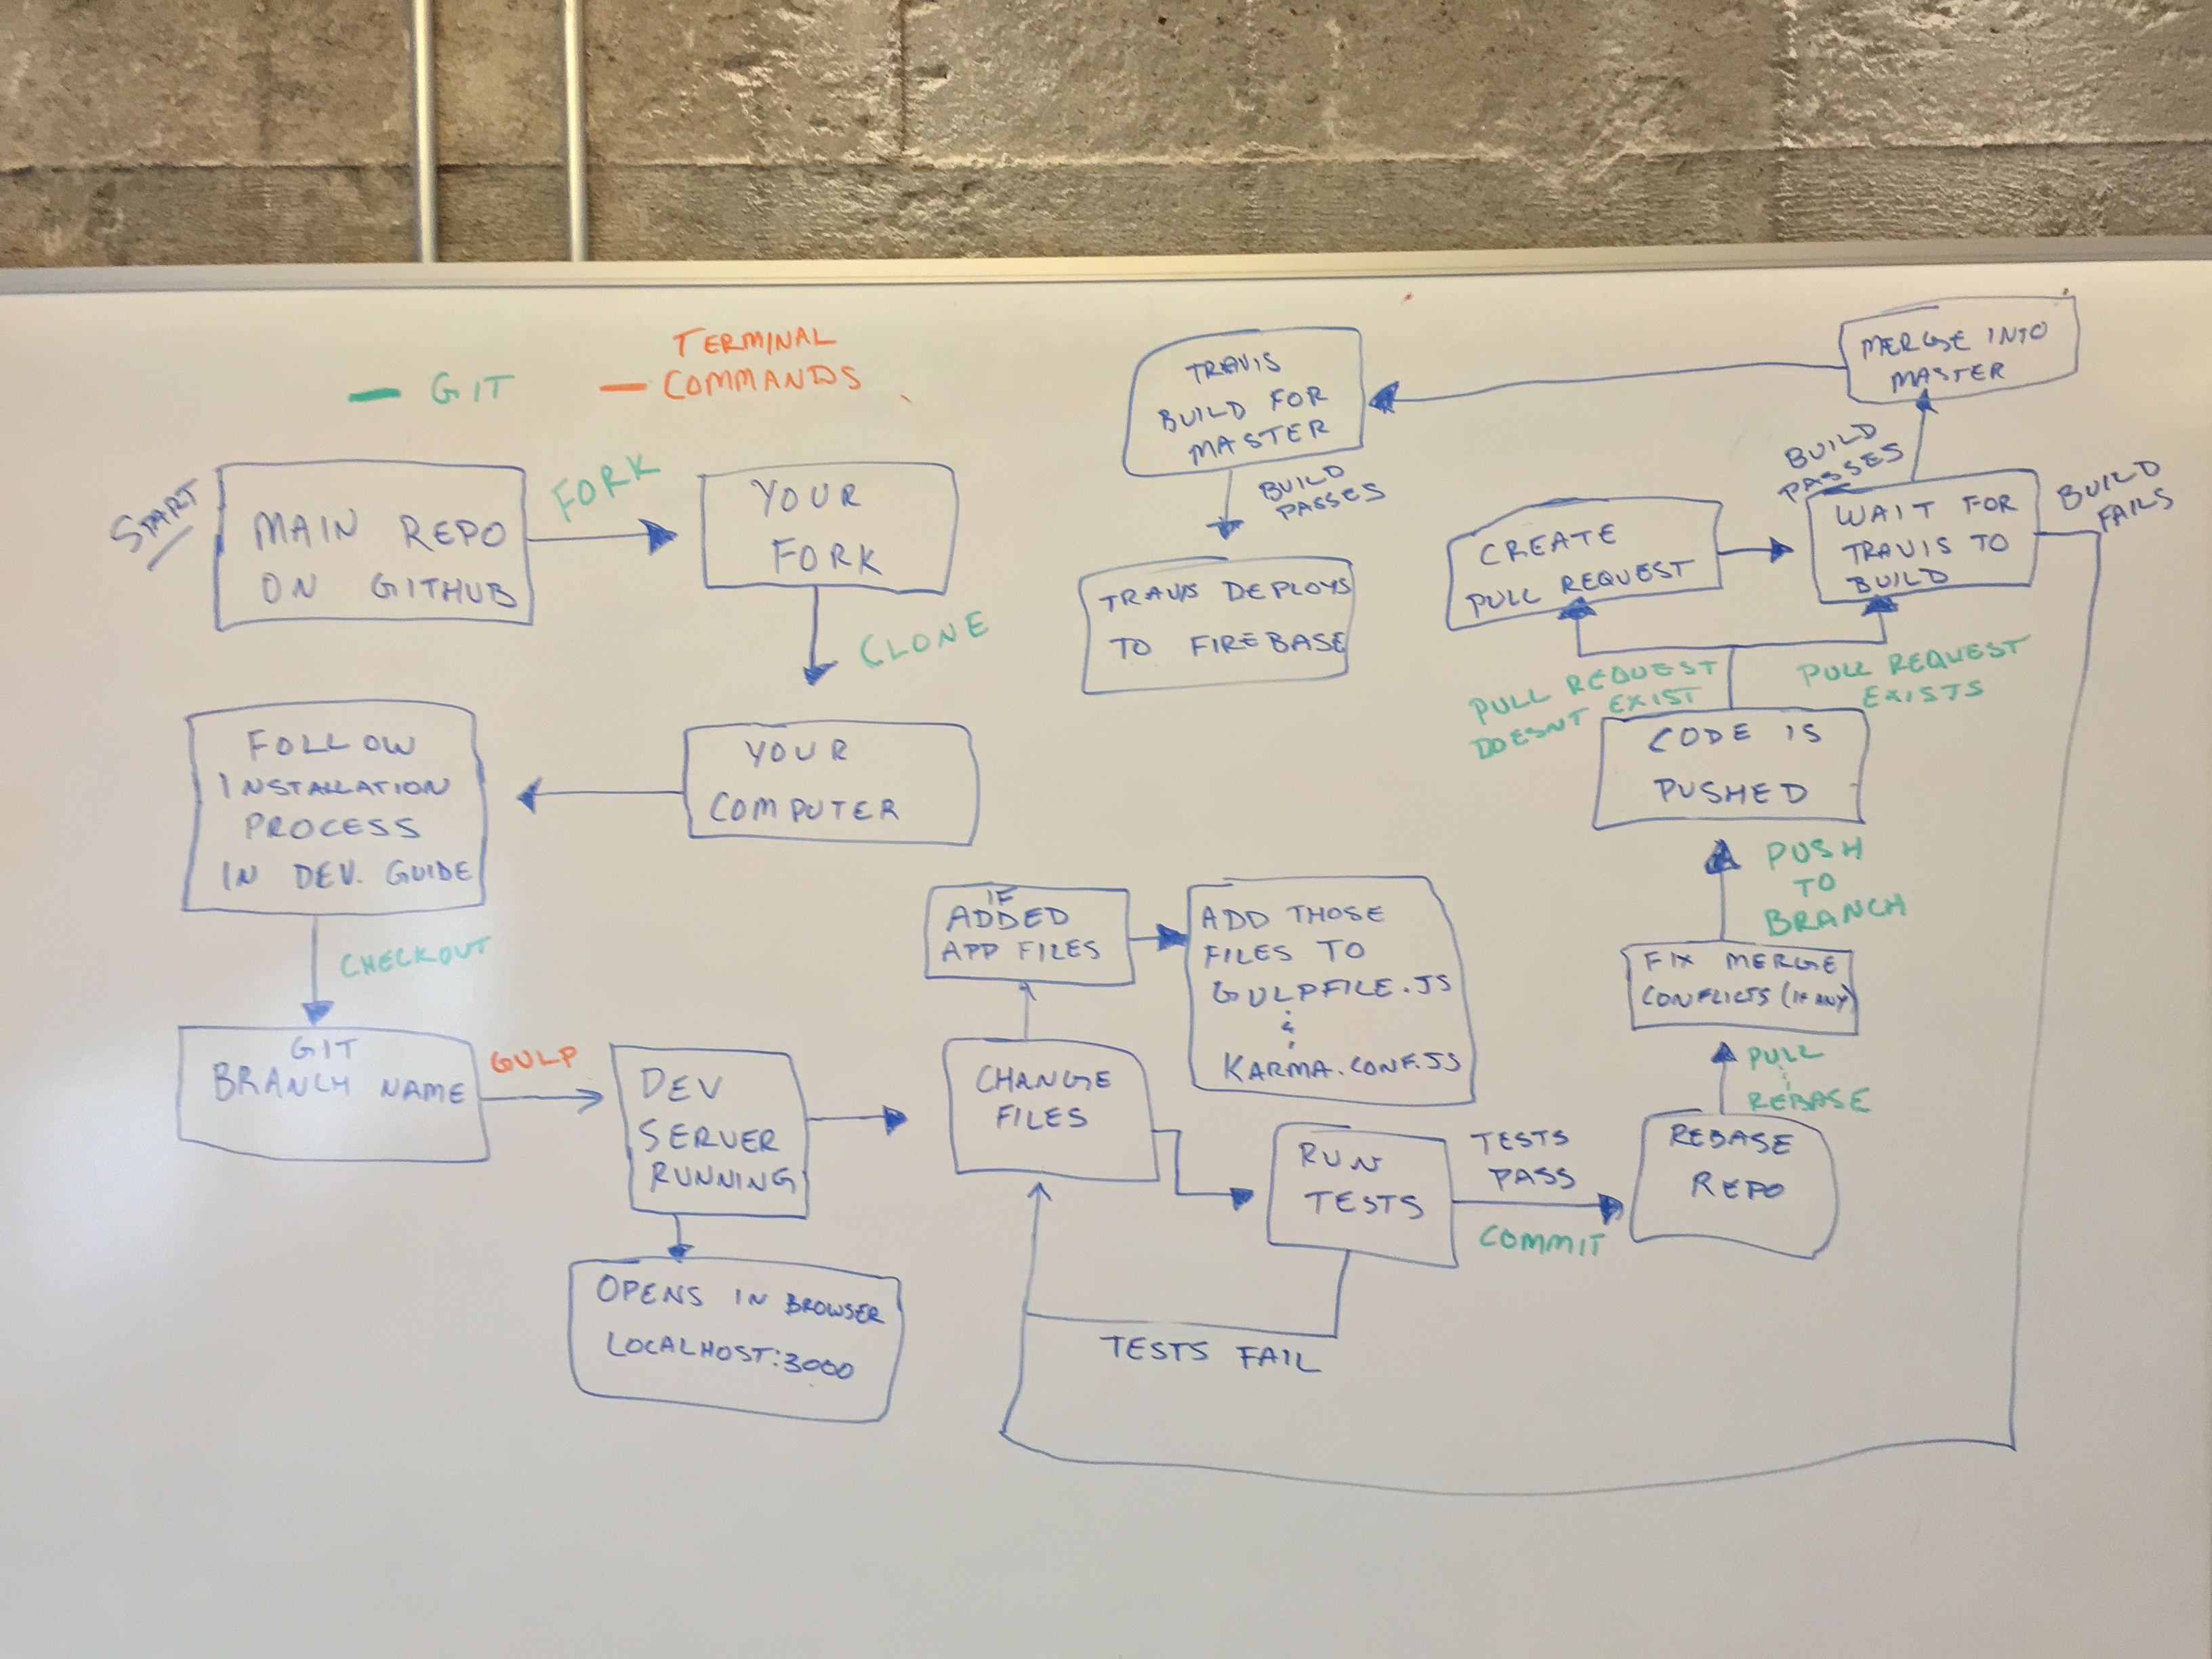 GIT
TERMINAL
COMMANDS
START
MAIN REPO
ON GITHUB
FORK
YOUR
FORK
CLONE
YOUR
COMPUTER
FOLLOW
INSTALLATION
PROCESS
IN DEV. GUIDE
CHECKOUT
GIT
BRANCH NAME
GULP
DEV
SERVER
RUNNING
OPENS IN BROWSER
LOCALHOST:3000
CHANGE
FILES
IF
ADDED
APP FILES
ADD THOSE
FILES TO
GULPFILE.JS
&
KARMA.CONF.JS
RUN
TESTS
TESTS FAIL
TESTS
PASS
COMMIT
REBASE
REPO
PULL
REBASE
FIX MERGE
CONFLICTS (IF ANY)
PUSH
TO
BRANCH
CODE IS
PUSHED
PULL REQUEST
DOESNT EXIST
PULL REQUEST
EXISTS
CREATE
PULL REQUEST
WAIT FOR
TRAVIS TO
BUILD
BUILD
FAILS
BUILD
PASSES
MERGE INTO
MASTER
TRAVIS
BUILD FOR
MASTER
BUILD
PASSES
TRAVIS DEPLOYS
TO FIREBASE